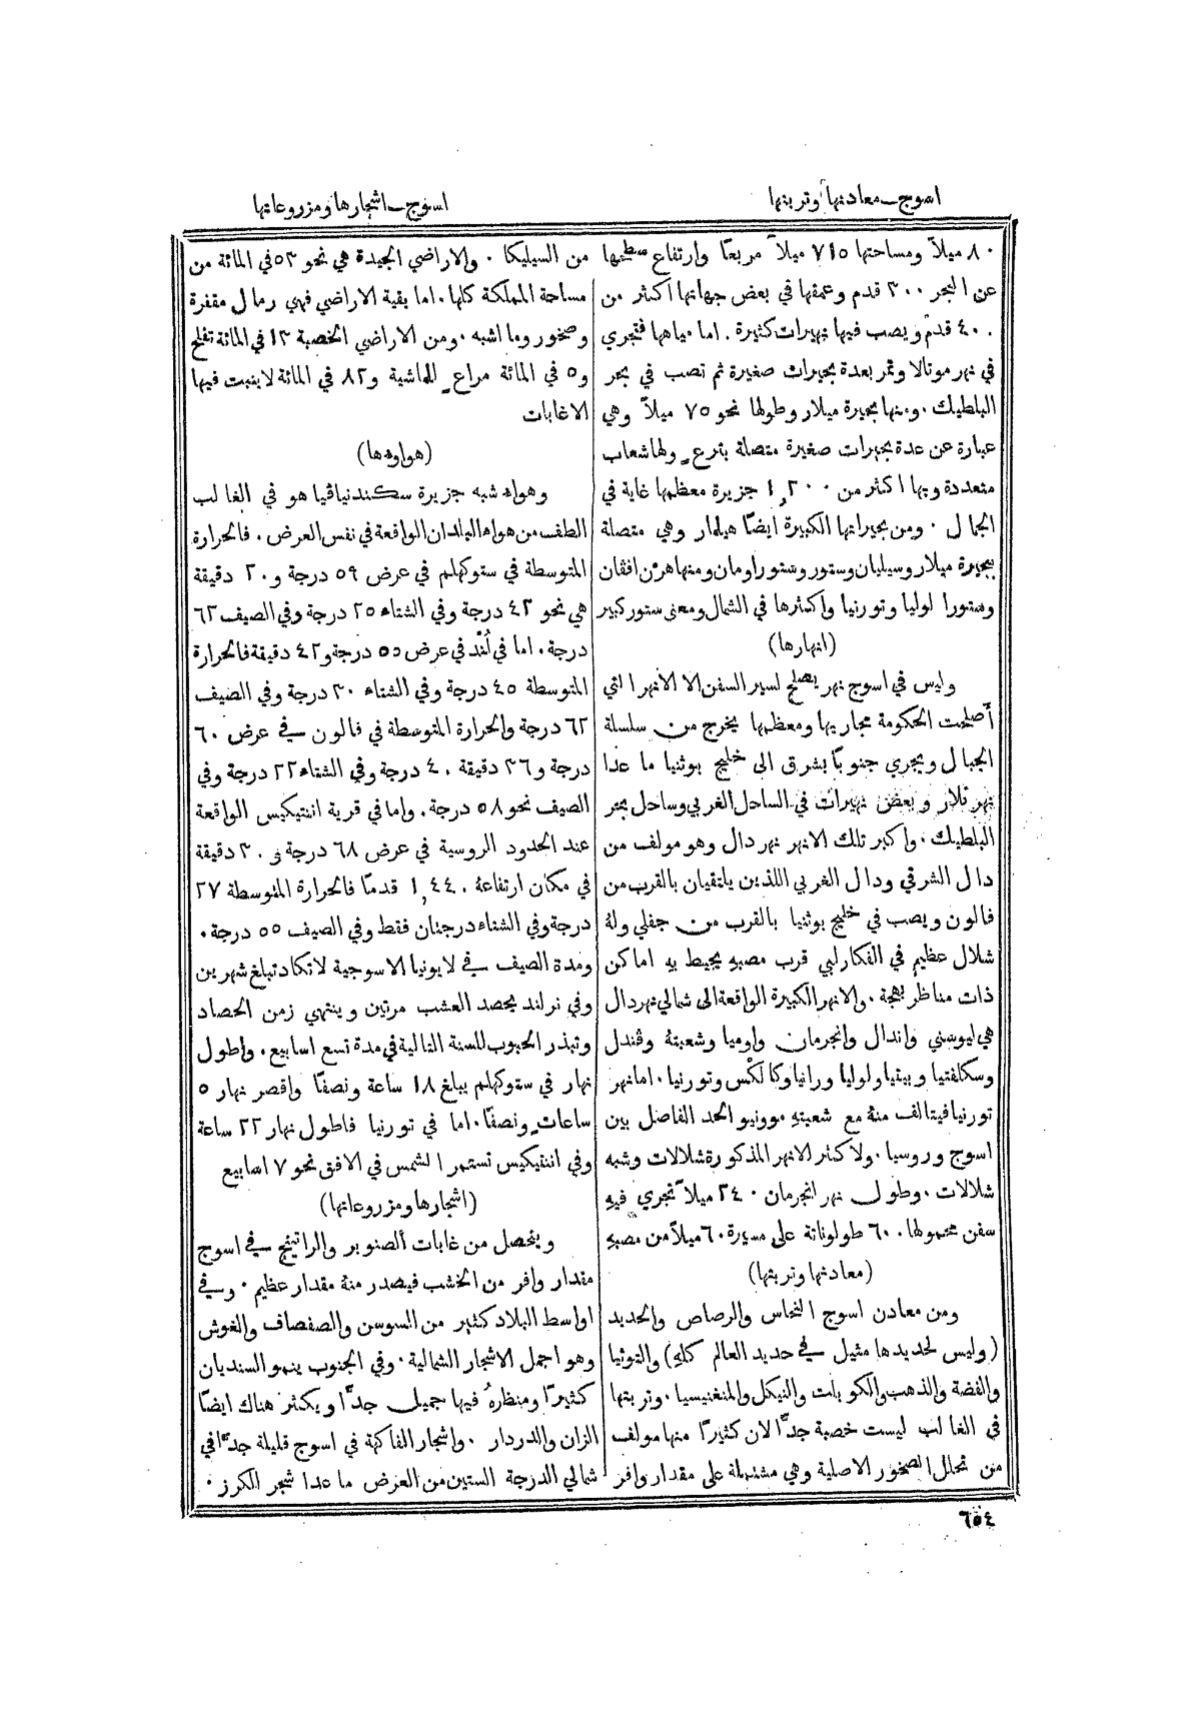 اسوج ـ معادنها وتربتها
اسوج ـ اشجارها ومزروعاتها
٨٠ ميلاً ومساحتها ٧١٥ ميلاً مربعًا وارتفاع سطحها
عن البحر ٣٠٠ قدم وعمقها في بعض جهاتها أكثر من
٤٠٠ قدم ويصب فيها نهيرات كثيرة. اما مياهها فتجري
في نهر موتالا وتمر بعدة بحيرات صغيرة ثم تصب في بحر
البلطيك. ومنها بحيرة ميلار وطولها نحو ٧٥ ميلاً وهي
عبارة عن عدة بحيرات صغيرة متصلة بترعٍ ولها شعاب
متعددة وبها اكثر من ١٬٢٠٠ جزيرة معظمها غاية في
الجمال. ومن بحيراتها الكبيرة ايضًا هيلمار وهي متصلة
ببحيرة ميلار وسيليان وستور وستوراومان ومنها هرن افقان
وستورا لوليا وتورنيا واكثرها في الشمال ومعنى ستور كبير
(انهارها)
وليس في اسوج نهر يصلح لسير السفن الا الانهر التي
أصلحت الحكومة مجاريها ومعظمها يخرج من سلسلة
الجبال ويجري جنوبًا بشرق الى خليج بوثنيا ما عدا
نهر تلار وبعض نهيرات في الساحل الغربي وساحل بحر
البلطيك. واكبر تلك الانهر نهر دال وهو مولف من
دال الشرقي ودال الغربي اللذين يلتقيان بالقرب من
فالون ويصب في خليج بوثنيا بالقرب من جفلي ولهُ
شلال عظيم في الفكارلبي قرب مصبهِ يحيط بهِ اماكن
ذات مناظر بهجة. والانهر الكبيرة الواقعة الى شمالي نهر دال
هي ليوسني واندال وانجرمان واوميا وشعبتهُ وڤندل
وسكلفتيا وبيتيا ولوليا ورانيا وكالكس وتورنيا. اما نهر
تورنيا فيتالف منهُ مع شعبتهِ موونيو الحد الفاصل بين
اسوج وروسيا. ولاكثر الانهر المذكورة شلالات وشبه
شلالات. وطول نهر انجرمان ٢٤٠ ميلاً تجري فيهِ
سفن محمولها ٦٠٠ طولوناتة على مسيرة ٦٠ ميلاً من مصبهِ
(معادنها وتربتها)
ومن معادن اسوج النحاس والرصاص والحديد
(وليس لحديدها مثيل في حديد العالم كلهِ) والتوتيا
والفضة والذهب والكوبلت والنيكل والمنغنيسيا. وتربتها
في الغالب ليست خصبة جدًّا لان كثيرًا منها مولف
من تحلل الصخور الاصلية وهي مشتملة على مقدار وافر
من السيليكا. والاراضي الجيدة هي نحو ٥٣ في المائة من
مساحة المملكة كلها. اما بقية الاراضي فهي رمال مقفرة
وصخور وما اشبه. ومن الاراضي الخصبة ١٣ في المائة تفلح
و٥ في المائة مراعٍ للماشية و٨٢ في المائة لا ينبت فيها
الا غابات
(هواوها)
وهواء شبه جزيرة سكندنياڤيا هو في الغالب
الطف من هواء البلدان الواقعة في نفس العرض. فالحرارة
المتوسطة في ستوكهلم في عرض ٥٩ درجة و٢٠ دقيقة
هي نحو ٤٢ درجة وفي الشتاء ٢٥ درجة وفي الصيف ٦٢
درجة. اما في لُنْد في عرض ٥٥ درجة و٤٢ دقيقة فالحرارة
المتوسطة ٤٥ درجة وفي الشتاء ٣٠ درجة وفي الصيف
٦٢ درجة والحرارة المتوسطة في فالون في عرض ٦٠
درجة و٣٦ دقيقة ٤٠ درجة وفي الشتاء ٢٢ درجة وفي
الصيف نحو ٥٨ درجة. واما في قرية انتيكيس الواقعة
عند الحدود الروسية في عرض ٦٨ درجة و٣٠ دقيقة
في مكان ارتفاعهُ ١٬٤٤٠ قدمًا فالحرارة المتوسطة ٢٧
درجة وفي الشتاء درجتان فقط وفي الصيف ٥٥ درجة.
ومدة الصيف في لابونيا الاسوجية لا تكاد تبلغ شهرين
وفي نرلند يحصد العشب مرتين وينتهي زمن الحصاد
وتبذر الحبوب للسنة التالية في مدة تسع اسابيع. واطول
نهار في ستوكهلم يبلغ ١٨ ساعة ونصفًا واقصر نهار ٥
ساعاتٍ ونصفًا. اما في تورنيا فاطول نهار ٢٢ ساعة
وفي انتيكيس تستمر الشمس في الافق نحو ٧ اسابيع
(اشجارها ومزروعاتها)
ويتحصل من غابات الصنوبر والراتينج في اسوج
مقدار وافر من الخشب فيصدر منهُ مقدار عظيم. وفي
اواسط البلاد كثير من السوسن والصفصاف والغوش
وهو اجمل الاشجار الشمالية. وفي الجنوب ينمو السنديان
كثيرًا ومنظرهُ فيها جميل جدًّا ويكثر هناك ايضًا
الزان والدردار. واشجار الفاكهة في اسوج قليلة جدًّا في
شمالي الدرجة الستين من العرض ما عدا شجر الكرز.
٦٥٤